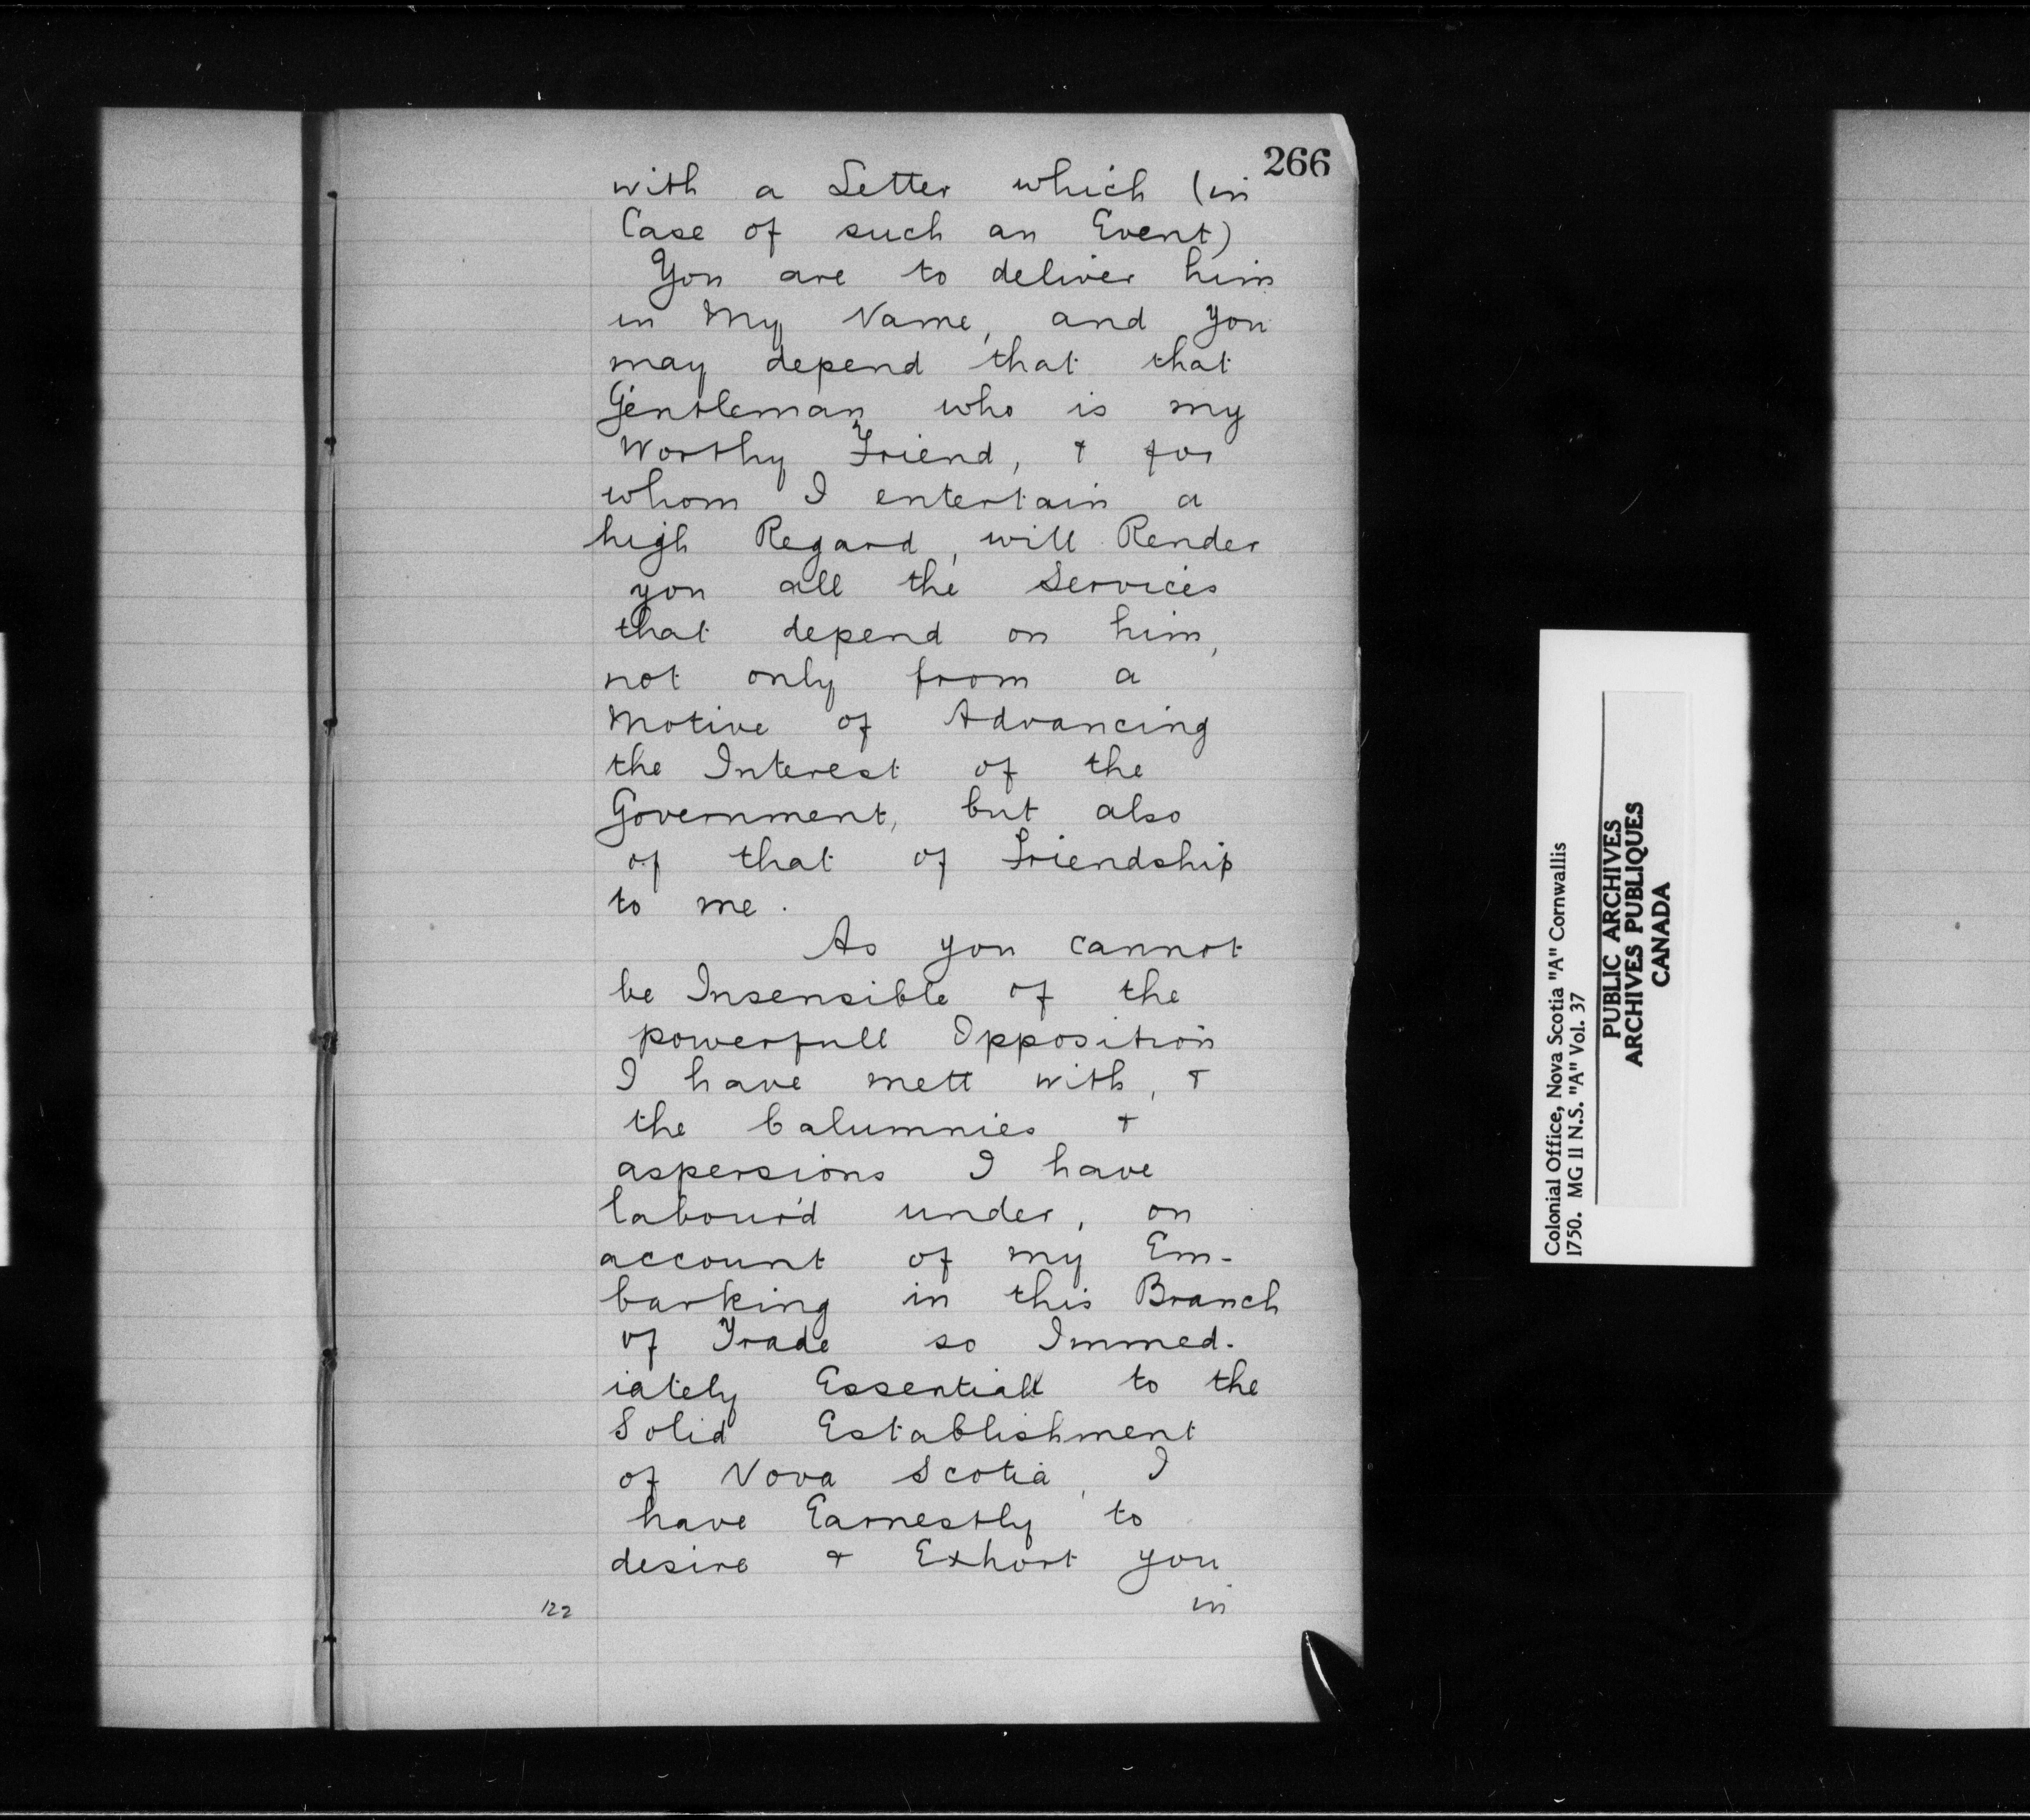 266
with a Letter which (in
Case of such an Event)
You are to deliver him
in My Name, and you
may depend that that
Gentleman who is my
Worthy Friend, & for
whom I entertain a
high Regard, will Render
you all the Services
that depend on him,
not only from a
Motive of Advancing
the Interest of the
Government, but also
of that of Friendship
to me.
As you cannot
be Insensible of the
powerfull Opposition
I have mett with, &
the Calumnies &
aspersions I have
labour'd under, on
account of my Em-
barking in this Branch
of Trade so Immed-
iately Essentiall to the
Solid Establishment
of Nova Scotia, I
have Earnestly to
desire & Exhort you
in
122
Colonial Office, Nova Scotia "A" Cornwallis
1750. MG 11 N.S. "A" Vol. 37
PUBLIC ARCHIVES
ARCHIVES PUBLIQUES
CANADA